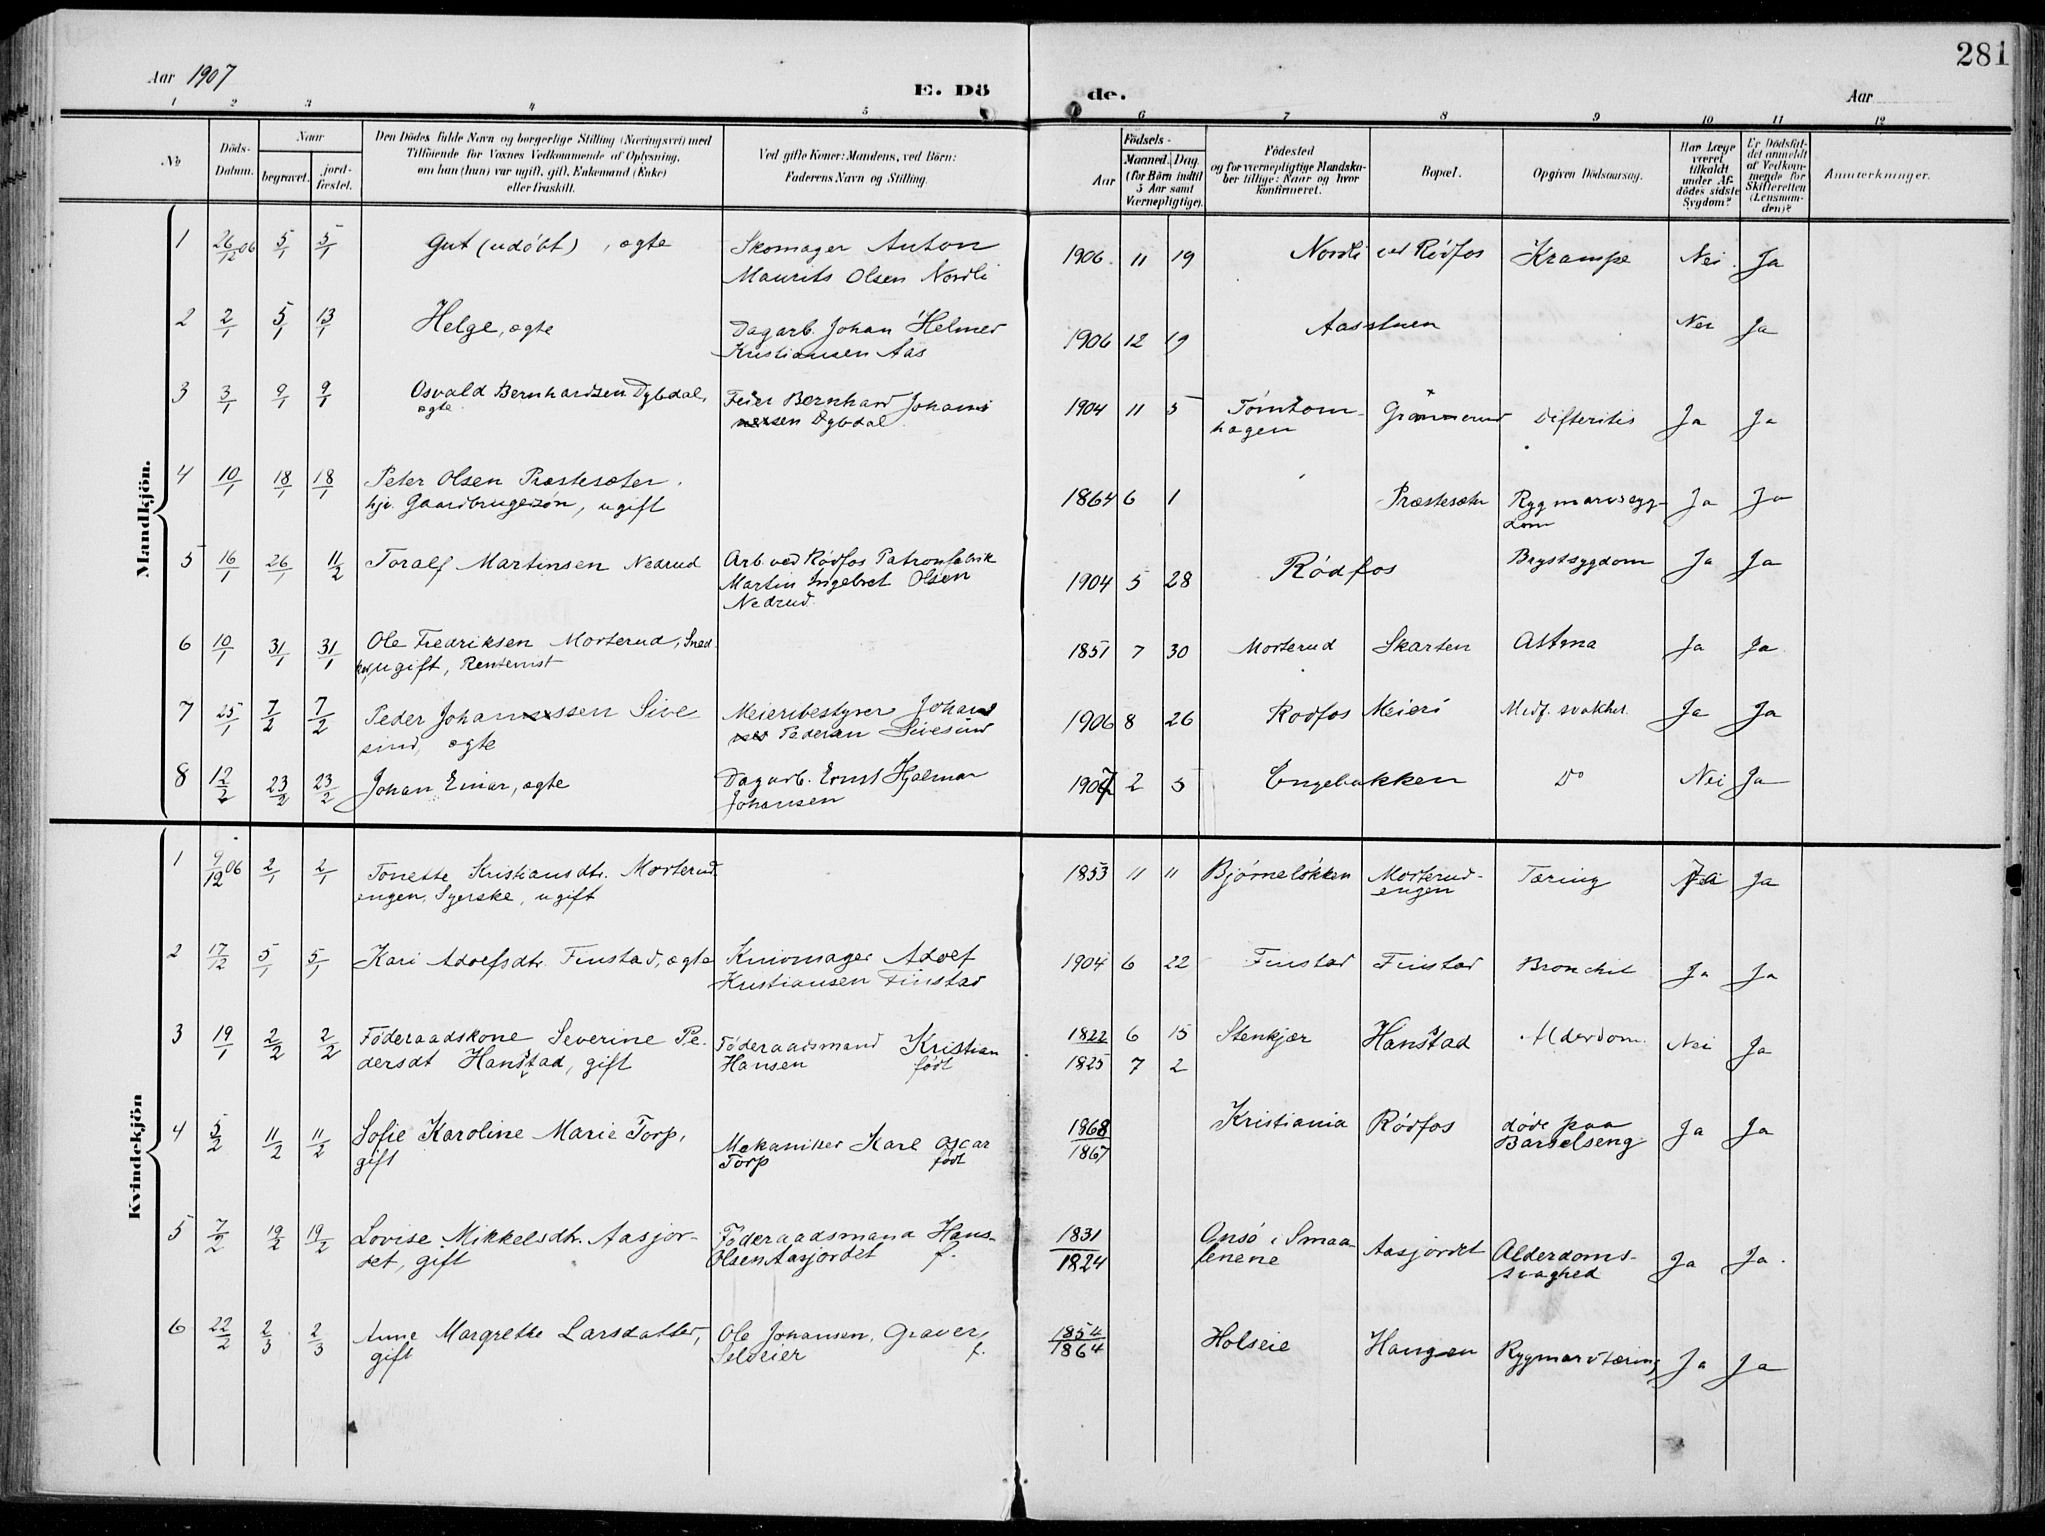 281
Aar 1907
E. Dö
de.
Aar
1 2 3 4 5 6 7 8 9 10 11 12
No
Döds-Datum.
Naar
begravet.
jord-fæstet.
Den Dödes fulde Navn og borgerlige Stilling (Næringsvei) med
Tilföiende for Voxnes Vedkommende af Oplysning,
om han (hun) var ugift, gift, Enkemand (Enke)
eller fraskilt.
Ved gifte Koner: Mandens, ved Börn:
Faderens Navn og Stilling.
Födsels-
Aar
Maaned. Dag.
(for Börn indtil
5 Aar samt
Værnepligtige).
Födested
og for værnepligtige Mandska-
ber tillige: Naar og hvor
konfirmeret.
Bopæl.
Opgiven Dödsaarsag.
Har Læge
været
tilkaldt
under Af-
dödes sidste
Sygdom?
Er Dödsfal-
det anmeldt
af Vedkom-
mende for
Skifteretten
(Lensman-
den)?
Anmærkninger.
Mandkjön.
1 26/12 06 5/1 5/1 Gut (udöbt), ægte Skomager Anton 1906. 11 19 Nordli ved Rødfos Krampe Nei. Ja
Maurits Olsen Nordli
2 2/1 5/1 13/1 Helge, ægte Dagarb. Johan Helmer 1906 12 19 Aasstuen Nei Ja
Kristiansen Aas
3 3/1 9/1 9/1 Osvald Bernhardsen Dybdal, Feier Bernhard Johans 1904 11 5 Grønnerud Difteritis Ja Ja
ægte. sen Dybdal. hagen
4 10/1 18/1 18/1 Peter Olsen Præstesæter. 1864 6 1 Præstesæter Rygmarvsyg- Ja Ja
hjv. Gaardbrugersøn, ugift dom
5 16/1 26/1 11/2 Toralf Martinsen Nedrud Arb. ved Rødfos Patronfabrik 1904 5 28 Rødfos Brystsygdom Ja Ja
Martin Ingebret Olsen
Nedrud.
6 10/1 31/1 31/1 Ole Fredriksen Morterud, Sned 1851 7 30 Morterud Skarten Astma Ja Ja
ker, ugift, Rentenist
7 25/1 7/2 7/2 Peder Johanssen Sive Meieribestyrer Johans 1906 8 26 Rødfos Meieri Medf. svakhet. Ja Ja
sind, ægte Pedersen Sivesind
8 12/2 23/2 23/2 Johan Einar, ægte Dagarb. Ernst Hjalmar 1907 2 5 Engebakken Do Nei Ja
Johansen
Kvindekjön
1 9/12 06 2/1 2/1 Tonette Kristiansdtr. Morterud 1853 11 11 Bjørneløkken Morterud- Tæring Ja Ja
engen, Syerske, ugift engen
2 17/12 5/1 5/1 Kari Adolfsdtr. Finstad, ægte Knivmager Adolf 1904 6 22 Finstad Finstad Bronchit Ja Ja
Kristiansen Finstad
3 19/1 2/2 2/2 Føderaadskone Severine Pe- Føderaadsmand Kristian 1822 6 15 Stenkjær Hanstad Alderdom. Nei Ja
dersdt Hanstad, gift Hansen født 1825 7 2
4 5/2 11/2 11/2 Sofie Karoline Marie Torp, Mekaniker Karl Oscar 1868 Kristiania Rødfos døde paa Ja Ja
gift Torp født 1867 Barselseng
5 7/2 19/2 19/2 Lovise Mikkelsdtr. Aasjor- Føderaadsmand Hans 1831 Onsø i Smaa- Aasjordet Alderdoms- Ja Ja.
det, gift Olsen Aasjordet f. 1824 lenene svaghed
6 22/2 2/3 2/3 Anne Margrethe Larsdatter, Ole Johansen, Graver, 1854 Holseie Haugen Rygmarvtæring Ja Ja
gift Selveier f. 1864